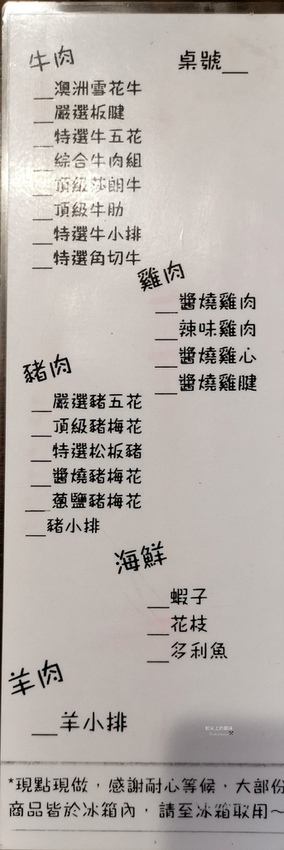 牛肉
桌號__
__澳洲雪花牛
__嚴選板腱
__特選牛五花
__綜合牛肉組
__頂級莎朗牛
__頂級牛肋
__特選牛小排
__特選角切牛
雞肉
__醬燒雞肉
__辣味雞肉
__醬燒雞心
__醬燒雞腱
豬肉
__嚴選豬五花
__頂級豬梅花
__特選松板豬
__醬燒豬梅花
__蔥鹽豬梅花
__豬小排
海鮮
__蝦子
__花枝
__多利魚
羊肉
__羊小排
*現點現做，感謝耐心等候，大部份
商品皆於冰箱內，請至冰箱取用~